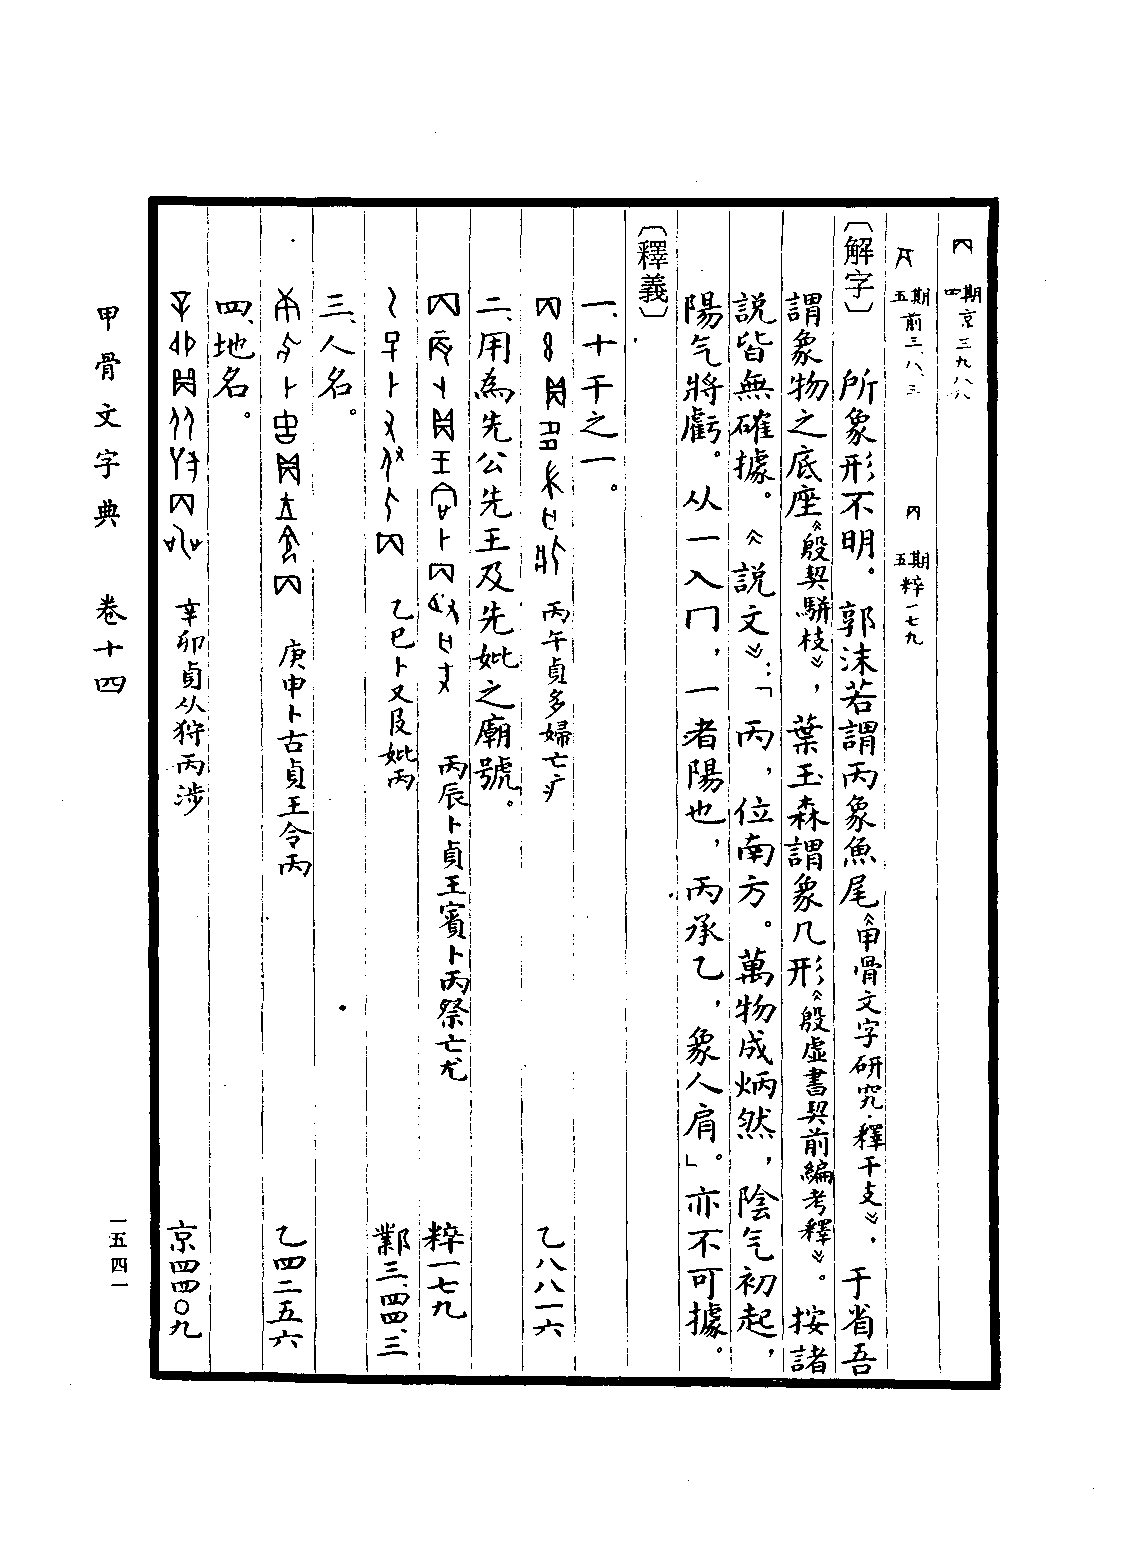 四期 京三九八八
五期 前三、八、三 五期 粹一七九
〔解字〕 所象形不明。郭沫若謂丙象魚尾《甲骨文字研究·釋干支》，于省吾
謂象物之底座《殷契駢枝》，葉玉森謂象几形《殷虛書契前編考釋》。按諸
說皆無確據。《說文》：「丙，位南方。萬物成炳然，陰气初起，
陽气將虧。从一入冂，一者陽也，丙承乙，象人肩。」亦不可據。
〔釋義〕
一、十干之一。
丙午貞多婦亡疒 乙八八一六
二、用為先公先王及先妣之廟號。
丙辰卜貞王賓卜丙祭亡尤 粹一七九
乙巳卜又𠬝妣丙 鄴三、四四、三
三、人名。
庚申卜古貞王令丙 乙四二五六
四、地名。
辛卯貞从狩丙涉 京四四〇九
甲骨文字典 卷十四
一五四一